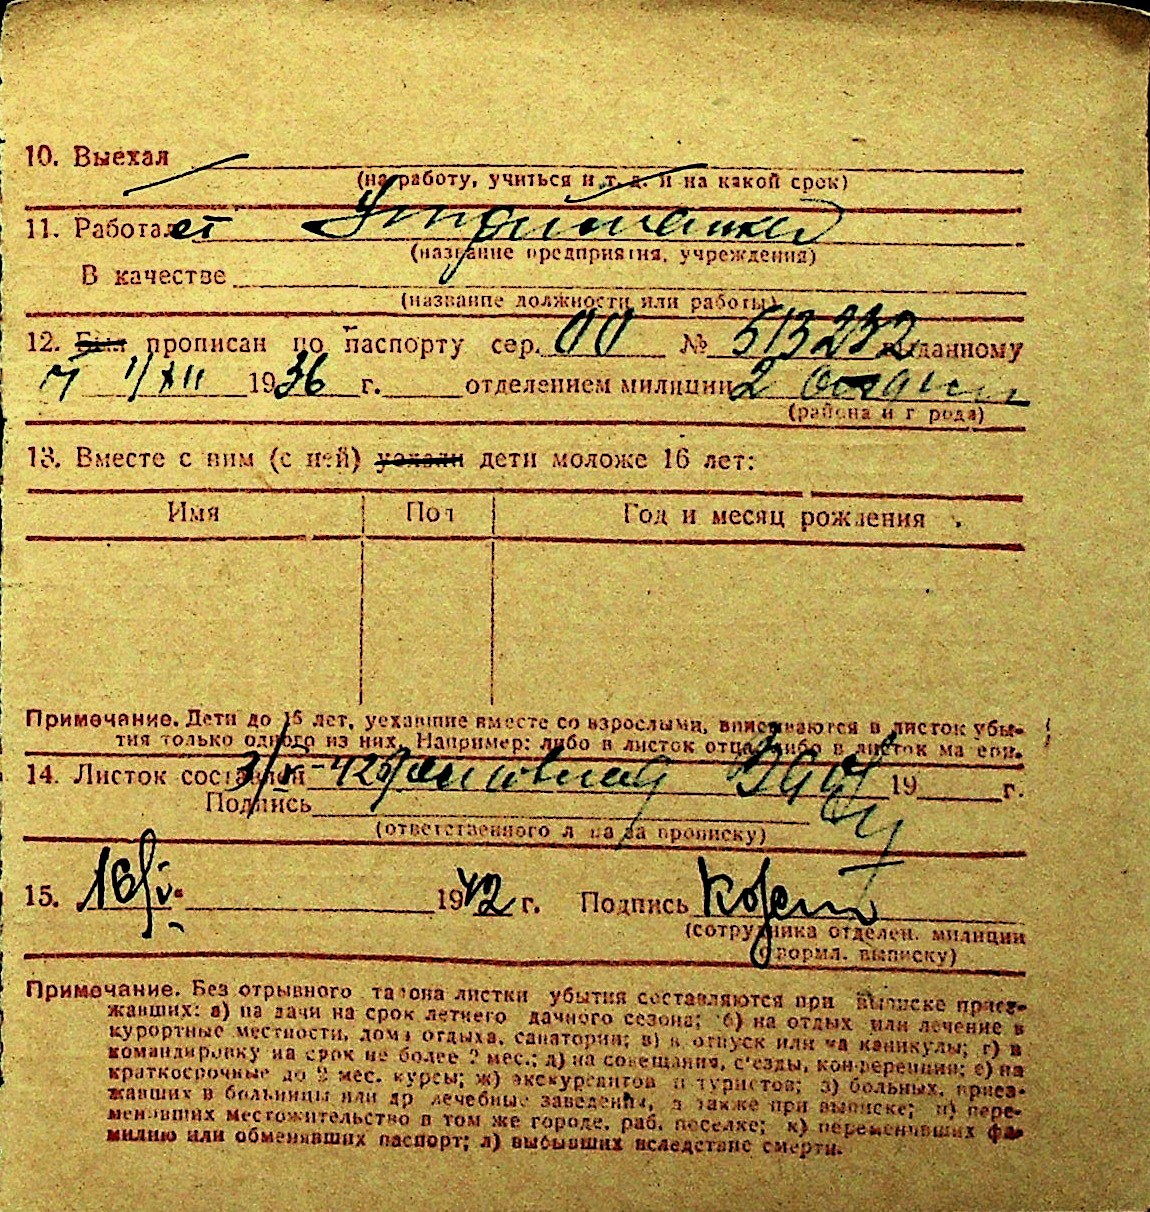 10. Выехал
(на работу, учиться и т. д. и на какой срок)
11. Работает
(название предприятия, учреждения)
В качестве
(название должности или работы)
12. Был прописан по паспорту сер. № 513232 выданному
1936 г. отделением милиции 2
(района и города)
13. Вместе с ним (с ней) уехали дети моложе 16 лет:
Имя Пол Год и месяц рождения
Примечание. Дети до 16 лет, уехавшие вместе со взрослыми, вписываются в листок убы-
тия только одного из них. Например: либо в листок отца либо в листок матери.
14. Листок составлен 19 г.
Подпись
(ответственного лица за прописку)
15. 16/V 1942 г. Подпись
(сотрудника отделен. милиции
оформл. выписку)
Примечание. Без отрывного талона листки убытия составляются при выписке приез-
жавших: а) на дачи на срок летнего дачного сезона; б) на отдых или лечение в
курортные местности, дома отдыха, санатории; в) в отпуск или на каникулы; г) в
командировку на срок не более 2 мес.; д) на совещания, съезды, конференции; е) на
краткосрочные до 2 мес. курсы; ж) экскурсантов и туристов; з) больных, приез-
жавших в больницы или др лечебные заведения, а также при выписке; и) пере-
менивших местожительство в том же городе, раб. поселке; к) переменивших фа-
милию или обменявших паспорт; л) выбывших вследствие смерти.